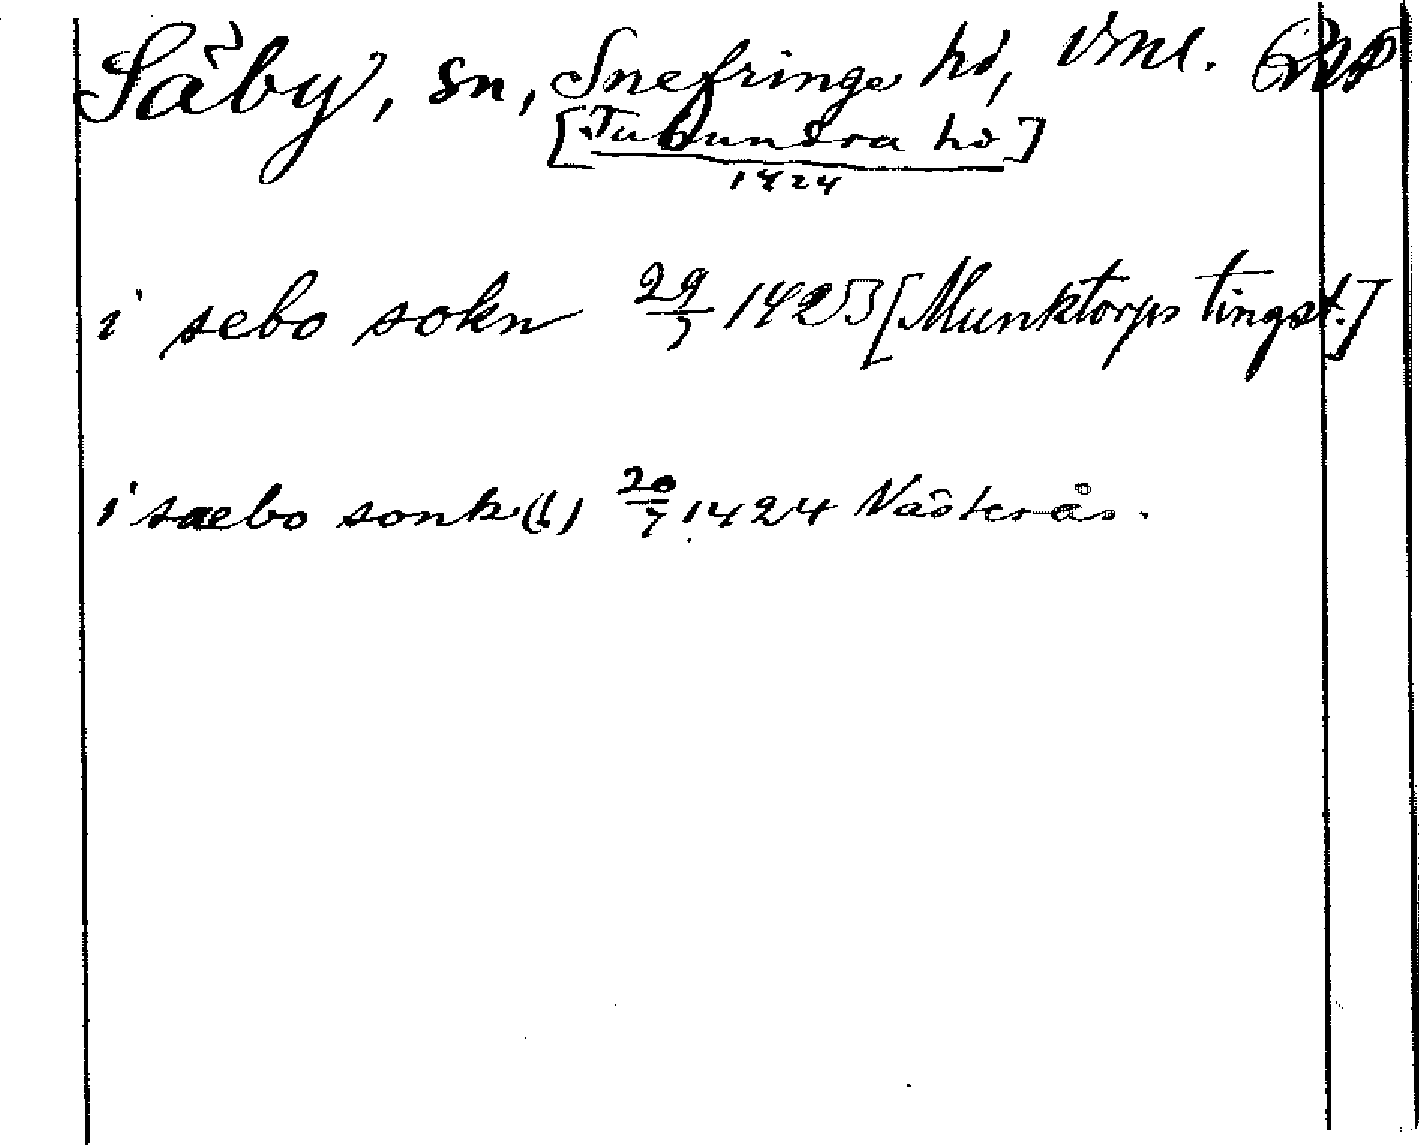 Säby, sn, Snefringe hd, Vml.
[Tuhundra hd]
1424
i sebo sokn 29/7 1425 [Munktorps tingst.]
i saebo sonk (!) 20/7 1424 Västerås.